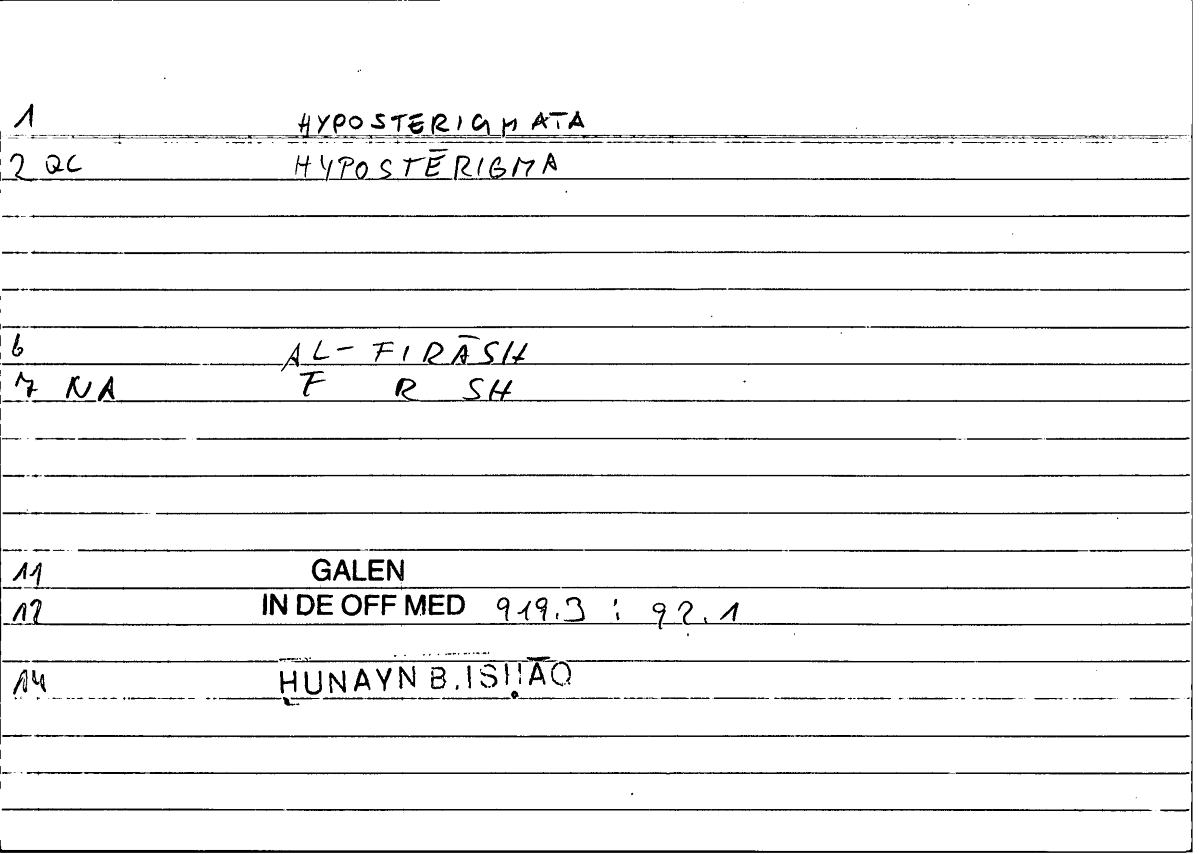 1 HYPOSTERIGMATA
2 QC HYPOSTĒRIGMA
6 AL-FIRĀSH
7 NA F R SH
11 GALEN
12 IN DE OFF MED 919.3 : 92.1
14 ḤUNAYN B. ISḤĀQ